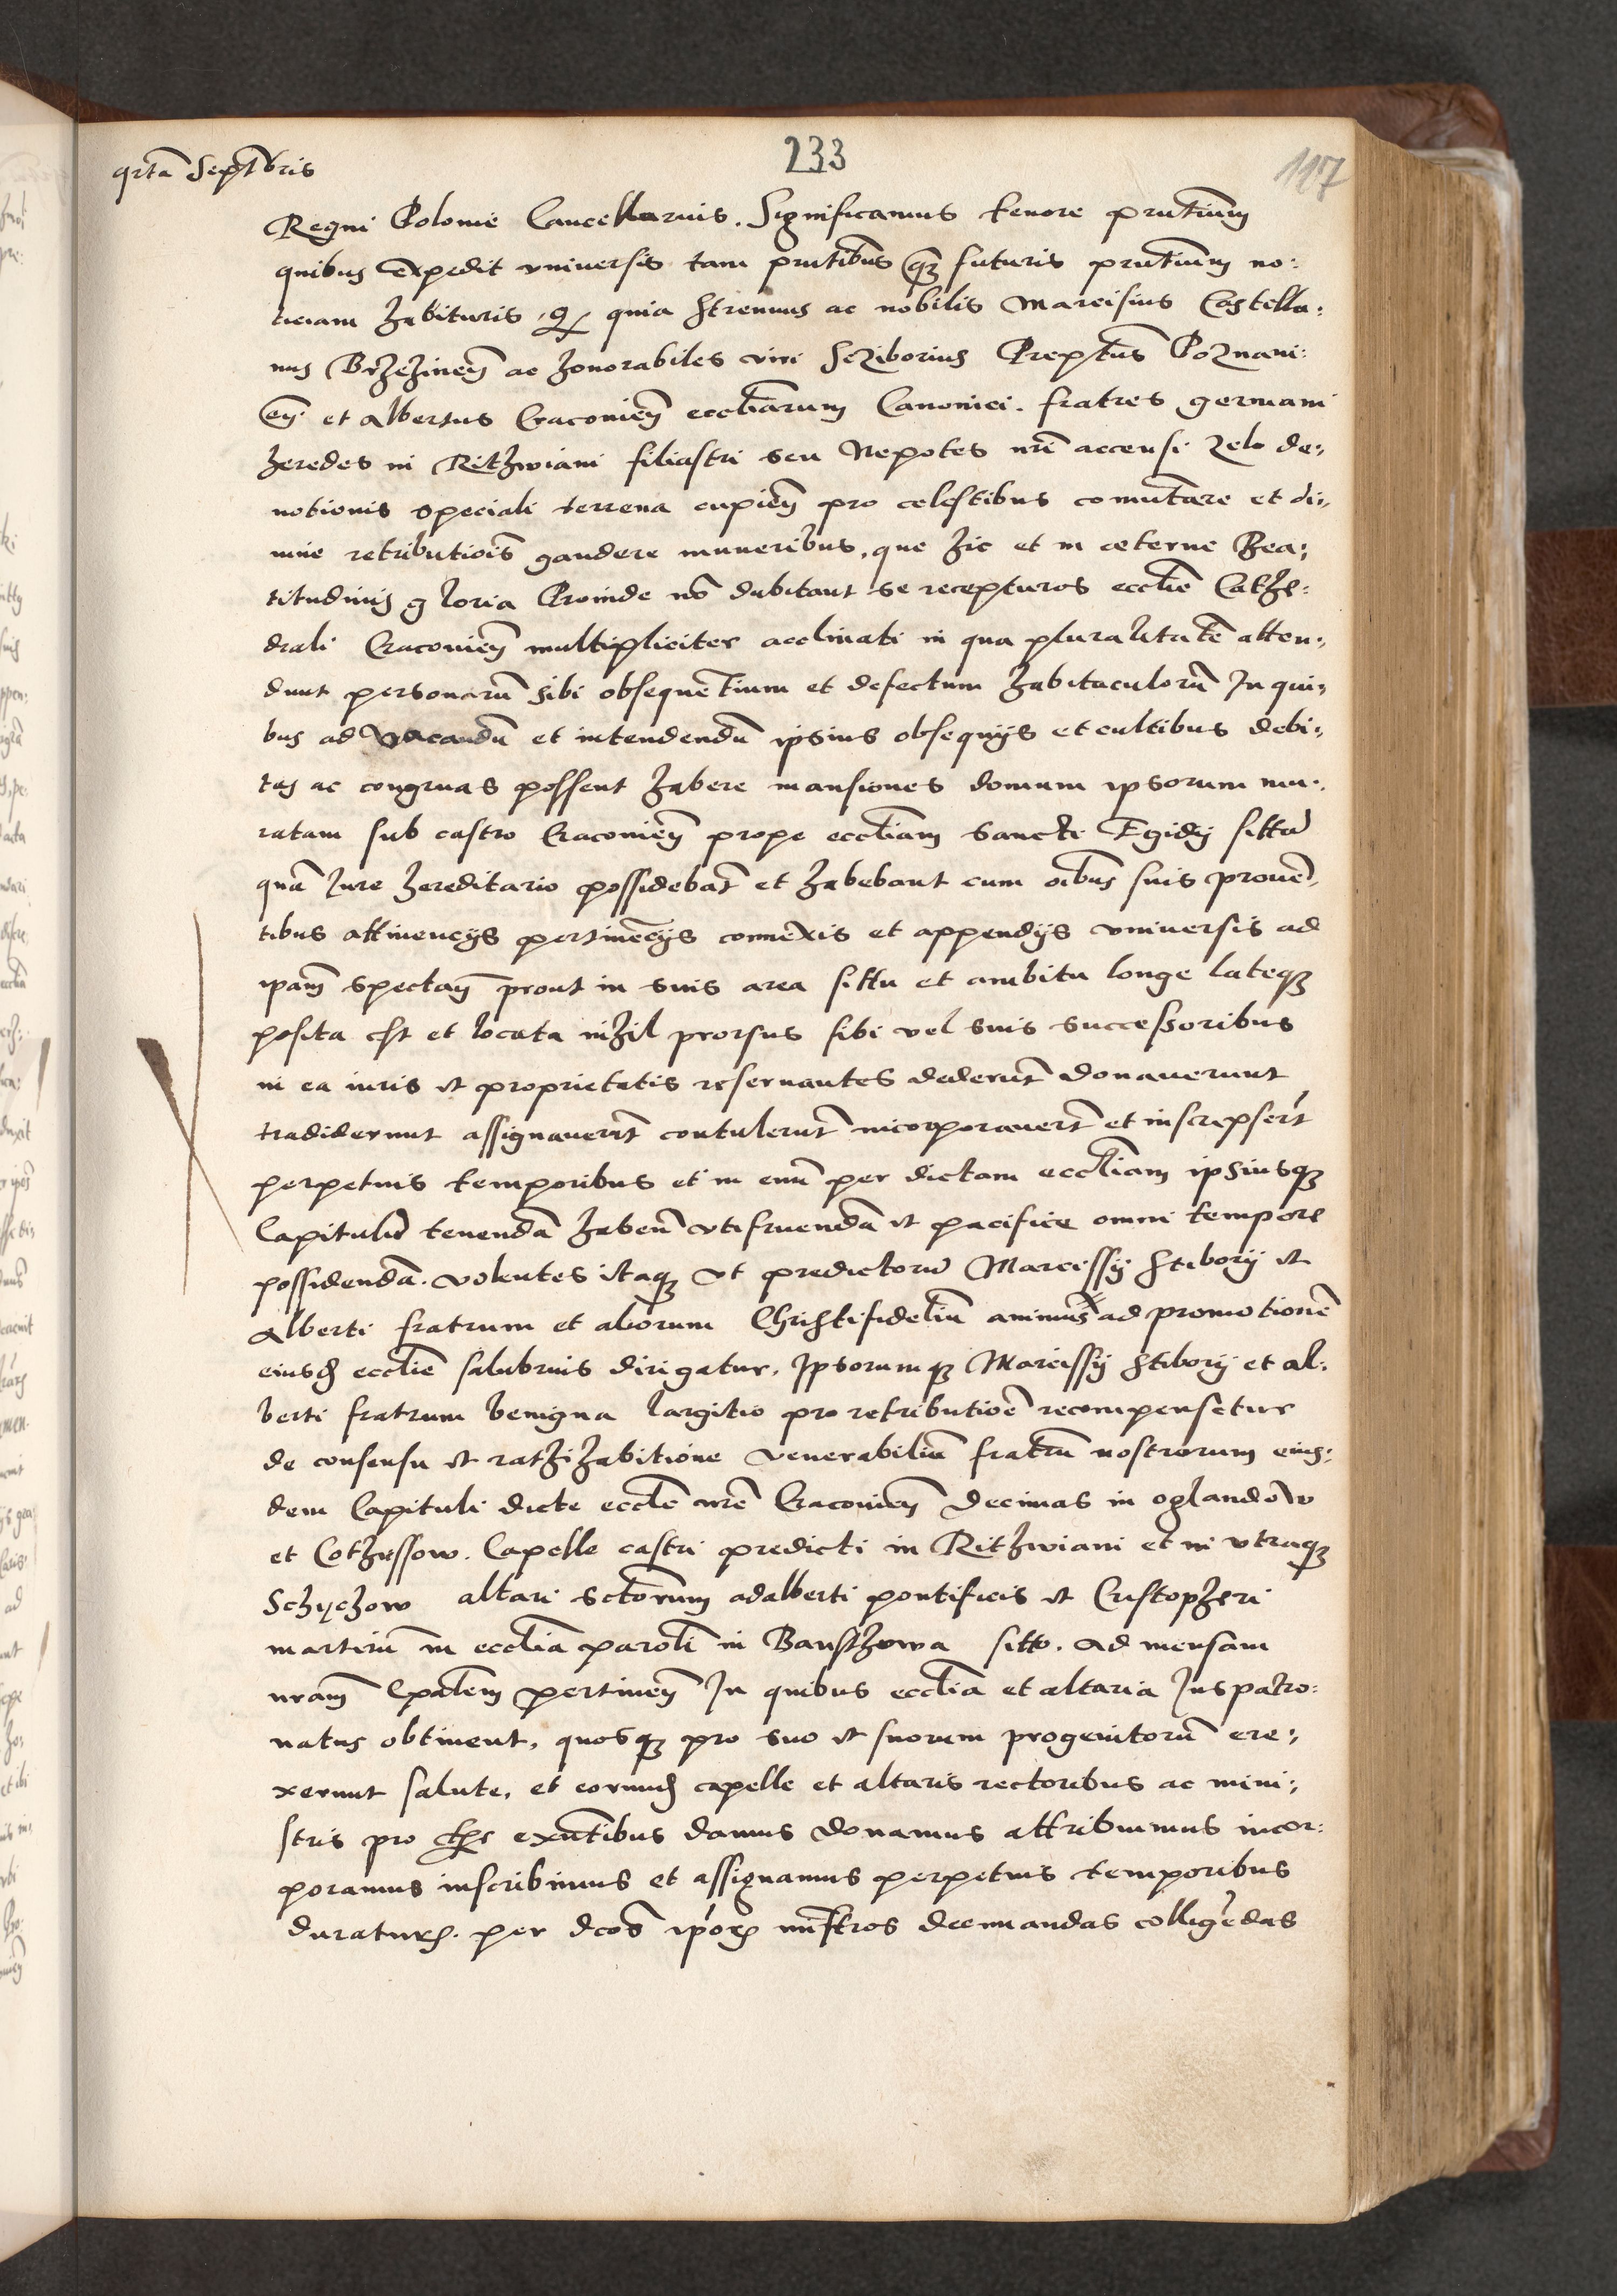 233
117
qrta Septembris
Regni Polonie Cancellarius. Significamus tenore prntium
quibus expedit vniversis tam prntibus qz futuris prntium no:
ticiam habituris, quia strenuus ac nobilis Marcisius Castella:
nus Brzezinen ac honorabiles viri Scziborius Preptus Poznani:
en et Albertus Cracovien eccliarum Canonici. fratres germani
heredes in Rithwiani filiastri seu Nepotes nri accensi zelo de:
uotionis speciali terrena cupien pro celestibus comutare et di:
uine retributiois gaudere muneribus, que hic et in aeterne Bea:
titudinis gloria Proinde no dubitant se recepturos ecclie Cathe:
drali Cracovien multipliciter acclinati in qua pluralitate atten:
dunt personaru sibi obsequentium et defectum habitaculoru In qui:
bus ad vacandu et intendendu ipsius obsequijs et cultibus debi:
tas ac congruas possent habere mansiones domum ipsorum mu:
ratam sub castro Cracovien prope eccliam Sancti Egidij sitta
qua Iure hereditario possidebat et habebant cum oibus suis proue
tibus attinencijs pertinecijs connexis et appendijs vniversis ad
ipam spectan prout in suis area sittu et ambitu longe lateqz
posita est et locata nihil prorsus sibi vel suis successoribus
in ea iuris et proprietatis reseruantes dederut donauerunt
tradiderunt assignauerut contulerut incorporauert et inscripsert
perpetuis temporibus et in euu per dictam eccliam ipsiusqz
Capitulu tenenda haben utifruenda et pacifice omni tempore
possidenda. volentes itaqz ut predictoru Marcissij Stiborij et
Alberti fratrum et aliorum Christifideliu animus ad promotione
eiusd ecclie salubrius dirigatur, Ipsorumqz Marcissij Stiborij et Al:
berti fratrum benigna largitio pro retributioe recompensetur
de consensu et rathihabitione venerabiliu fratru nostrorum eius:
dem Capituli dicte eccle nre Cracovien Decimas in oglandow
et Cothussow. Capelle castri predicti in Rithwiani et in utraqz
Schychow altari sctorum adalberti pontificis et Cristopheri
martiru in ecclia paroli in Banskowa sitto. Ad mensam
nram Epalem pertinen In quibus ecclia et altaria Iuspatro:
natus obtinent, quosqz pro suo et suorum progenitoru ere:
xerunt salute, et eorumd capelle et altaris rectoribus ac mini:
stris pro tpe exntibus damus donamus attribuimus incor:
poramus inscribimus et assignamus perpetuis temporibus
duraturis. per dcos ipor ministros decimandas colligedas